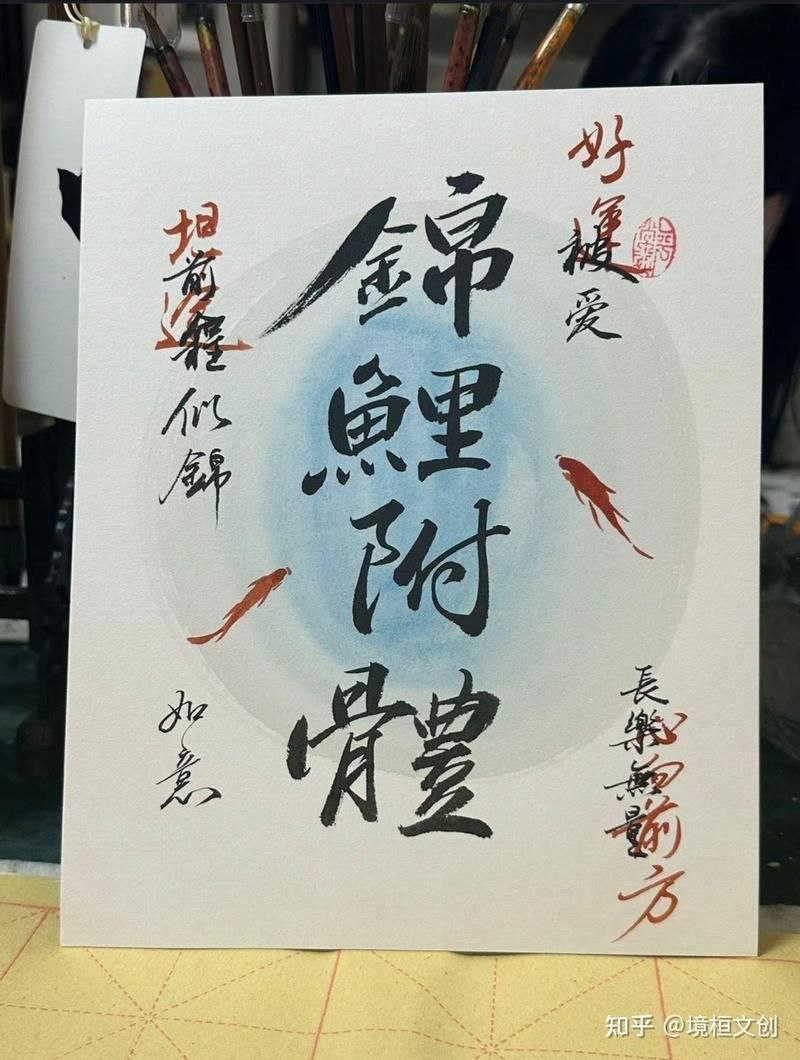 錦鯉附體
好運
被愛
坦途
前程似錦
如意
長樂無量
心向前方
知乎 @境桓文创